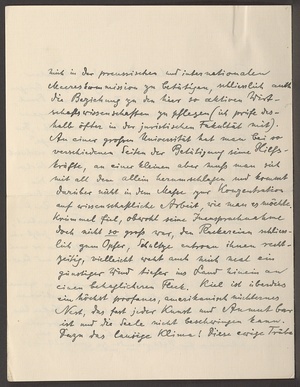 mich in der preussischen und internationalen
Meereskommission zu betätigen, schliesslich auch
die Beziehung zu den hier so aktiven Wirt-
schaftswissenschaften zu pflegen (ich prüfe des-
halb öfter in der juristischen Fakultät mit).
An einer großen Universität hat man bei so
verschiedenen Seiten der Betätigung seine Hilfs-
kräfte, an einer kleinen aber muss man sich
mit all dem allein herumschlagen und kommt
darüber nicht in dem Masse zur Konzentration
auf wissenschaftliche Arbeit, wie man es möchte.
Krümmel fiel, obwohl seine Inanspruchnahme
doch nicht so gross war, den schliess-
lich zum Opfer, entrann ihnen recht-
zeitig, vielleicht weht auch mich mal ein
günstiger Wind tiefer ins Land hinein an
einen behaglicheren Fleck. Kiel ist überdies
ein höchst profanes, amerikanisch nüchternes
Nest, das fast jeder Kunst und Anmut bar
ist und die Seele nicht beschwingen kann.
Dazu das lausige Klima! Diese ewige Trübe